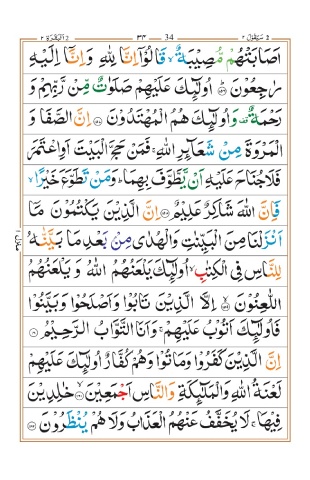 البقرة ٢ ٣٣ 34 سيقول ٢
اَصَابَتْهُمْ مُّصِيْبَةٌ ۙ قَالُوْۤا اِنَّا لِلّٰهِ وَاِنَّاۤ اِلَيْهِ
رٰجِعُوْنَ ؕ﴿۱۵۶﴾ اُولٰٓئِكَ عَلَيْهِمْ صَلَوٰتٌ مِّنْ رَّبِّهِمْ وَ
رَحْمَةٌ ۟ وَاُولٰٓئِكَ هُمُ الْمُهْتَدُوْنَ ﴿۱۵۷﴾ اِنَّ الصَّفَا وَ
الْمَرْوَةَ مِنْ شَعَآئِرِ اللّٰهِ ۚ فَمَنْ حَجَّ الْبَيْتَ اَوِ اعْتَمَرَ
فَلَا جُنَاحَ عَلَيْهِ اَنْ يَّطَّوَّفَ بِهِمَا ؕ وَمَنْ تَطَوَّعَ خَيْرًا ۙ
فَاِنَّ اللّٰهَ شَاكِرٌ عَلِيْمٌ ﴿۱۵۸﴾ اِنَّ الَّذِيْنَ يَكْتُمُوْنَ مَاۤ
اَنْزَلْنَا مِنَ الْبَيِّنٰتِ وَالْهُدٰى مِنْۢ بَعْدِ مَا بَيَّنّٰهُ
لِلنَّاسِ فِى الْكِتٰبِ ۙ اُولٰٓئِكَ يَلْعَنُهُمُ اللّٰهُ وَ يَلْعَنُهُمُ
اللّٰعِنُوْنَ ۙ﴿۱۵۹﴾ اِلَّا الَّذِيْنَ تَابُوْا وَاَصْلَحُوْا وَبَيَّنُوْا
فَاُولٰٓئِكَ اَتُوْبُ عَلَيْهِمْ ۚ وَاَنَا التَّوَّابُ الرَّحِيْمُ ﴿۱۶۰﴾
اِنَّ الَّذِيْنَ كَفَرُوْا وَمَاتُوْا وَهُمْ كُفَّارٌ اُولٰٓئِكَ عَلَيْهِمْ
لَعْنَةُ اللّٰهِ وَالْمَلٰٓئِكَةِ وَالنَّاسِ اَجْمَعِيْنَ ۙ﴿۱۶۱﴾ خٰلِدِيْنَ
فِيْهَا ۚ لَا يُخَفَّفُ عَنْهُمُ الْعَذَابُ وَلَا هُمْ يُنْظَرُوْنَ ﴿۱۶۲﴾